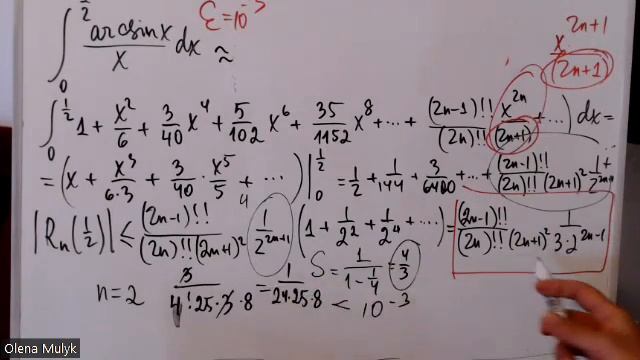 ∫₀^{1/2} arcsin x / x dx ≈   ε = 10⁻³
x^{2n+1} / (2n+1)
∫₀^{1/2} 1 + x²/6 + 3/40 x⁴ + 5/102 x⁶ + 35/1152 x⁸ + ... + (2n-1)!! x^{2n} / (2n)!! (2n+1) + ...) dx =
= (x + x³/6·3 + 3/40 · x⁵/5 + ...)|₀^{1/2} = 1/2 + 1/144 + 3/6400 + ... + (2n-1)!! / (2n)!! (2n+1)² 1/2^{2n+1} +
|Rₙ(1/2)| ≤ (2n-1)!! / (2n)!! (2n+1)² 1/2^{2n+1} (1 + 1/2² + 1/2⁴ + ...) = (2n-1)!! / (2n)!! (2n+1)² 1 / 3·2^{2n-1}
S = 1 / (1 - 1/4) = 4/3
n = 2   3 / 4!·25·3·8 = 1 / 24·25·8 < 10⁻³
Olena Mulyk